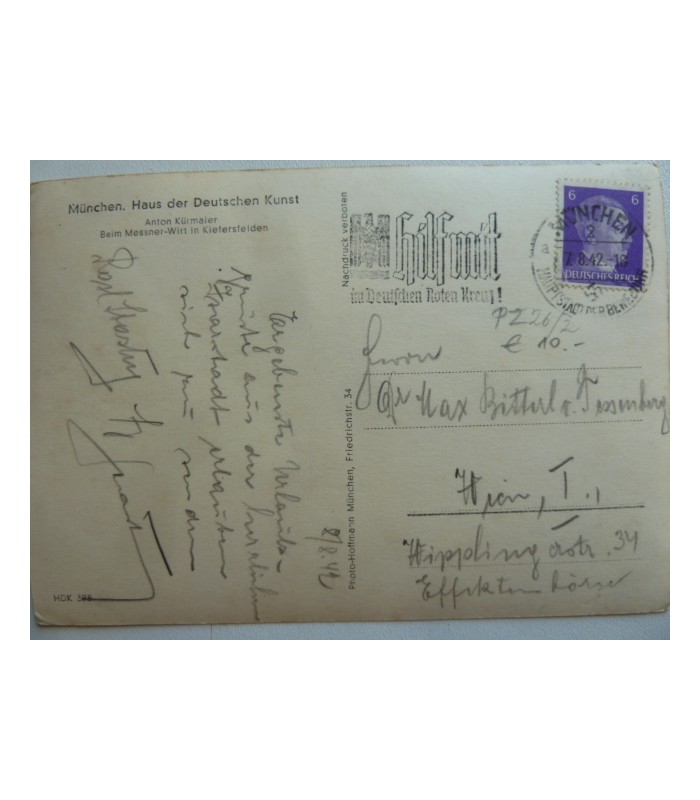 München. Haus der Deutschen Kunst
Anton Kürmaier
Beim Messner-Wirt in Kiefersfelden
Nachdruck verboten
hilf mit
im Deutschen Roten Kreuz!
6 6
DEUTSCHES REICH
MÜNCHEN
2
7.8.42.-18
HAUPTSTADT DER BEWEGUNG
PZ 26/2
€ 10.-
Herrn
Dr Max Bitterl v. Tessenberg
Wien, I.,
Wipplingerstr. 34
Effekten börse
8/8.42
Ergebenste Urlaubs-
grüße aus der herrlichen
erlauben
Photo-Hoffmann München, Friedrichstr. 34
HDK 388